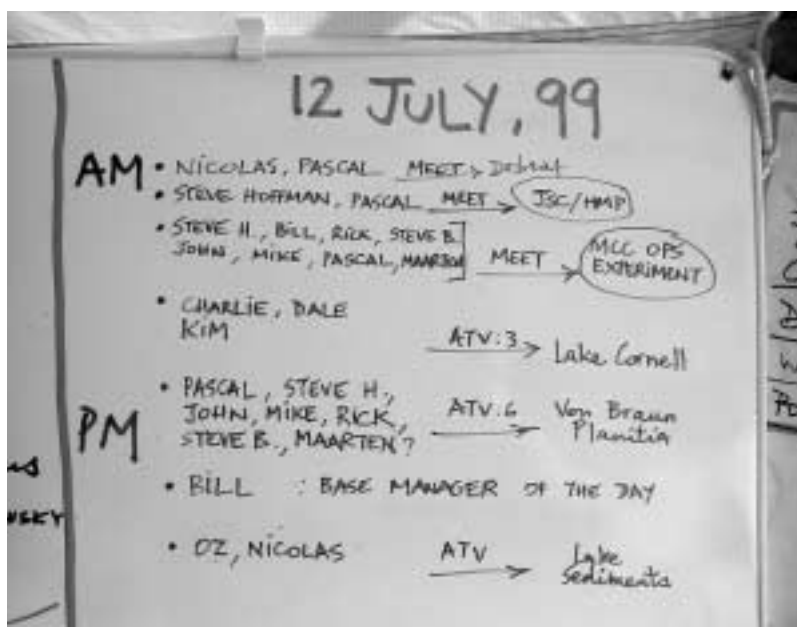 12 JULY, 99
AM • NICOLAS, PASCAL MEET → Debrief
• STEVE HOFFMAN, PASCAL MEET → JSC/HMP
• STEVE H., BILL, RICK, STEVE B.
JOHN, MIKE, PASCAL, MAARTEN MEET → MCC OPS
EXPERIMENT
• CHARLIE, DALE
KIM ATV:3 → Lake Cornell
PM • PASCAL, STEVE H.,
JOHN, MIKE, RICK, ATV:6 → Von Braun
STEVE B., MAARTEN? Planitia
• BILL : BASE MANAGER OF THE DAY
• OZ, NICOLAS ATV → Lake
Sediments